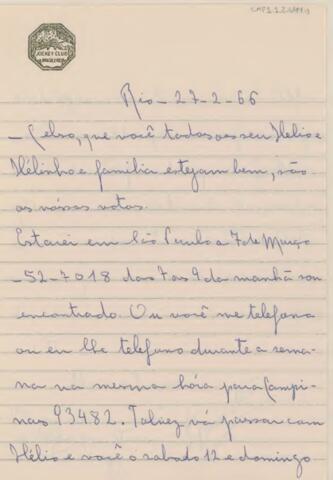 JOCKEY CLUB
BRASILEIRO
Rio - 27-2-66
- Celso, que você todos os seu Hélio e
Hélinho e familia estejam bem, são
os nóssos votos.
Estarei em São Paulo a 7 de Março
- 52-7018 das 7 as 9 da manhã sou
encontrado. Ou você me telefona
ou eu lhe telefono durante a sema-
na na mesma hóra para Campi-
nas 93482. Talvez vá passar com
Hélio e você o sabado 12 e domingo